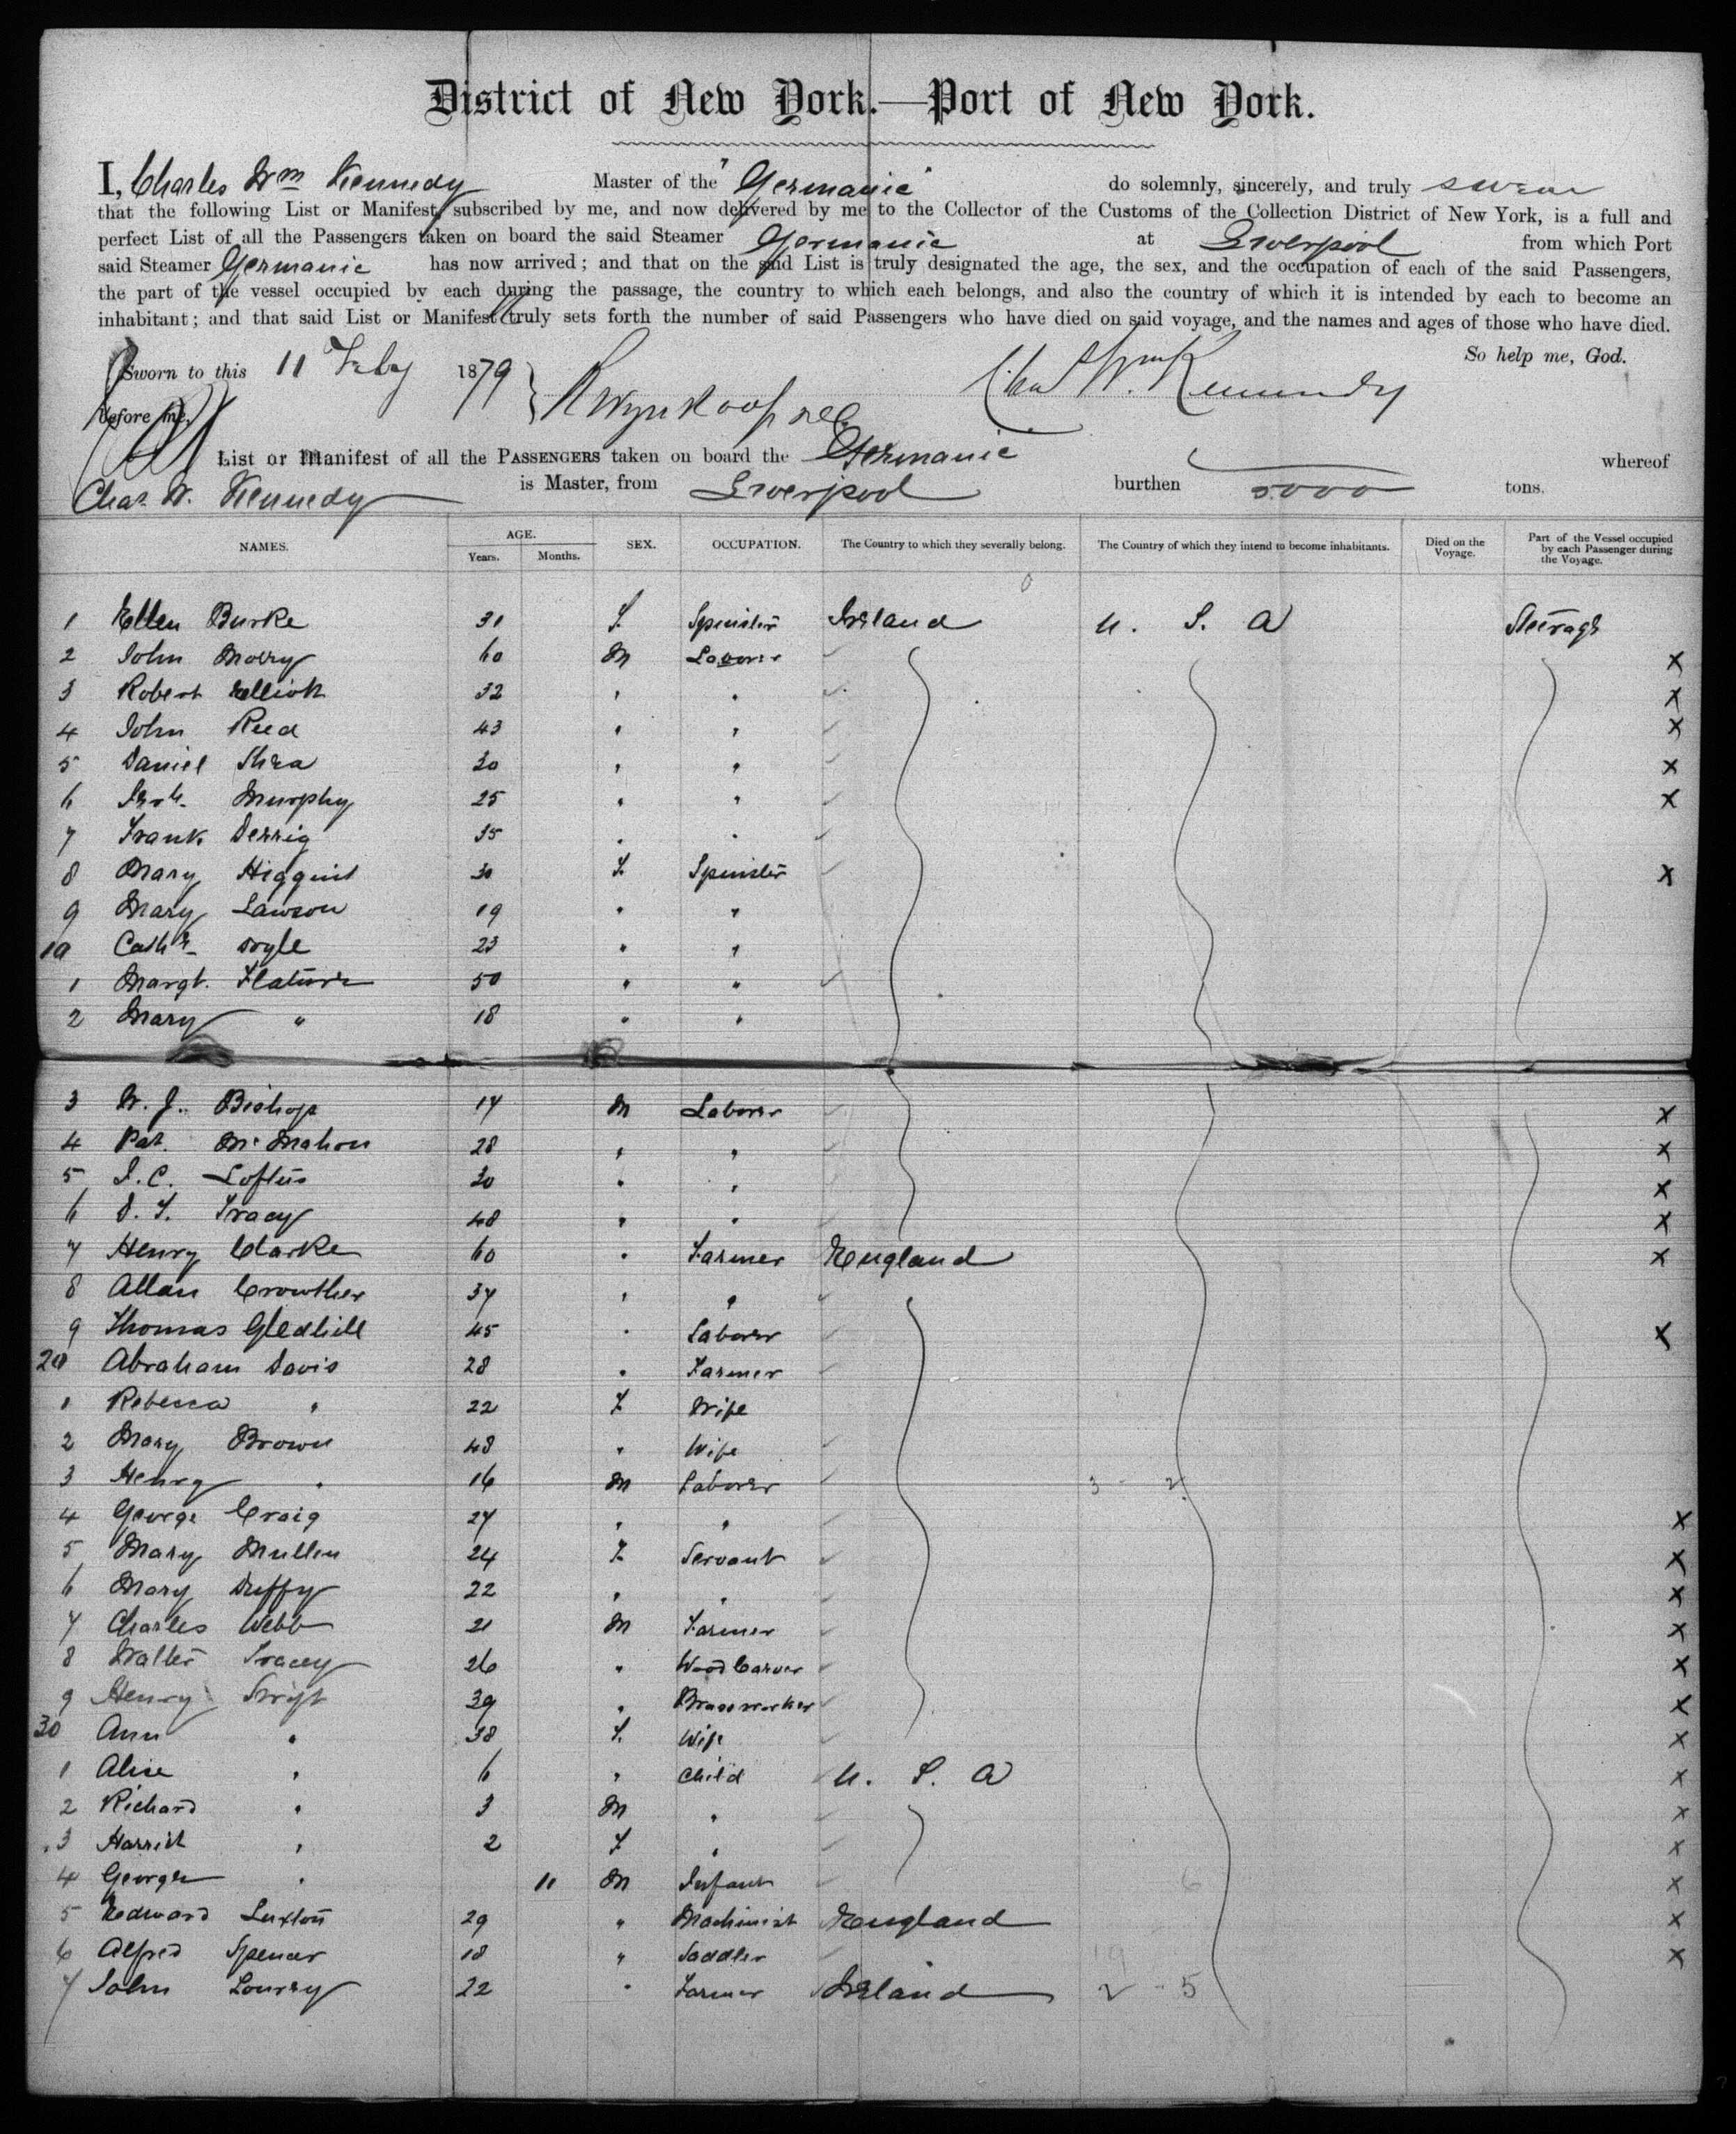 District of New York.—Port of New York.
I, Charles Wm Kennedy Master of the "Germanic" do solemnly, sincerely, and truly swear
that the following List or Manifest, subscribed by me, and now delivered by me to the Collector of the Customs of the Collection District of New York, is a full and
perfect List of all the Passengers taken on board the said Steamer Germanic at Liverpool from which Port
said Steamer Germanic has now arrived; and that on the said List is truly designated the age, the sex, and the occupation of each of the said Passengers,
the part of the vessel occupied by each during the passage, the country to which each belongs, and also the country of which it is intended by each to become an
inhabitant; and that said List or Manifest truly sets forth the number of said Passengers who have died on said voyage, and the names and ages of those who have died.
So help me, God.
Sworn to this 11 Feby 1879 Chas Wm Kennedy
before me,
List or Manifest of all the PASSENGERS taken on board the Germanic whereof
Chas. W. Kennedy is Master, from Liverpool burthen 5000 tons.
NAMES. AGE. Years. Months. SEX. OCCUPATION. The Country to which they severally belong. The Country of which they intend to become inhabitants. Died on the Voyage. Part of the Vessel occupied by each Passenger during the Voyage.
1 Ellen Burke 31 F. Spinster Ireland U. S. A Steerage
2 John 60 M Laborer X
3 Robert Elliott 32 " " X
4 John Reed 43 " " X
5 Daniel Shea 30 " " X
6 Murphy 25 " " X
7 Frank Derrig 35 " "
8 Mary Higgins 30 F. Spinster X
9 Mary Lawson 19 " "
10 Cathe Doyle 23 " "
1 Margt. 50 " "
2 Mary " 18 " "
3 W. J. Bishop 17 M Laborer X
4 Pat. McMahon 28 " " X
5 J. C. Loftus 30 " " X
6 D. F. Tracy 48 " " X
7 Henry Clarke 60 " Farmer England X
8 Allan Crowther 37 " "
9 Thomas Gledhill 45 " Laborer X
20 Abraham Davis 28 " Farmer
1 Rebecca " 22 F. Wife
2 Mary Brown 48 " Wife
3 Henry " 16 M Laborer 3 - 2
4 George Craig 27 " " X
5 Mary Mullen 24 F. Servant X
6 Mary Duffy 22 " " X
7 Charles Webb 21 M Farmer X
8 Walter Tracey 26 " Wood Carver X
9 Henry Swift 39 " Brassworker X
30 Ann " 38 F. Wife X
1 Alice " 6 " Child U. S. A X
2 Richard " 3 M " X
3 Harriet " 2 F " X
4 George " 11 M Infant X
5 Edward Luxton 29 " Machinist England X
6 Alfred Spencer 18 " Saddler X
7 John Lowry 22 " Farmer Ireland 2 - 5